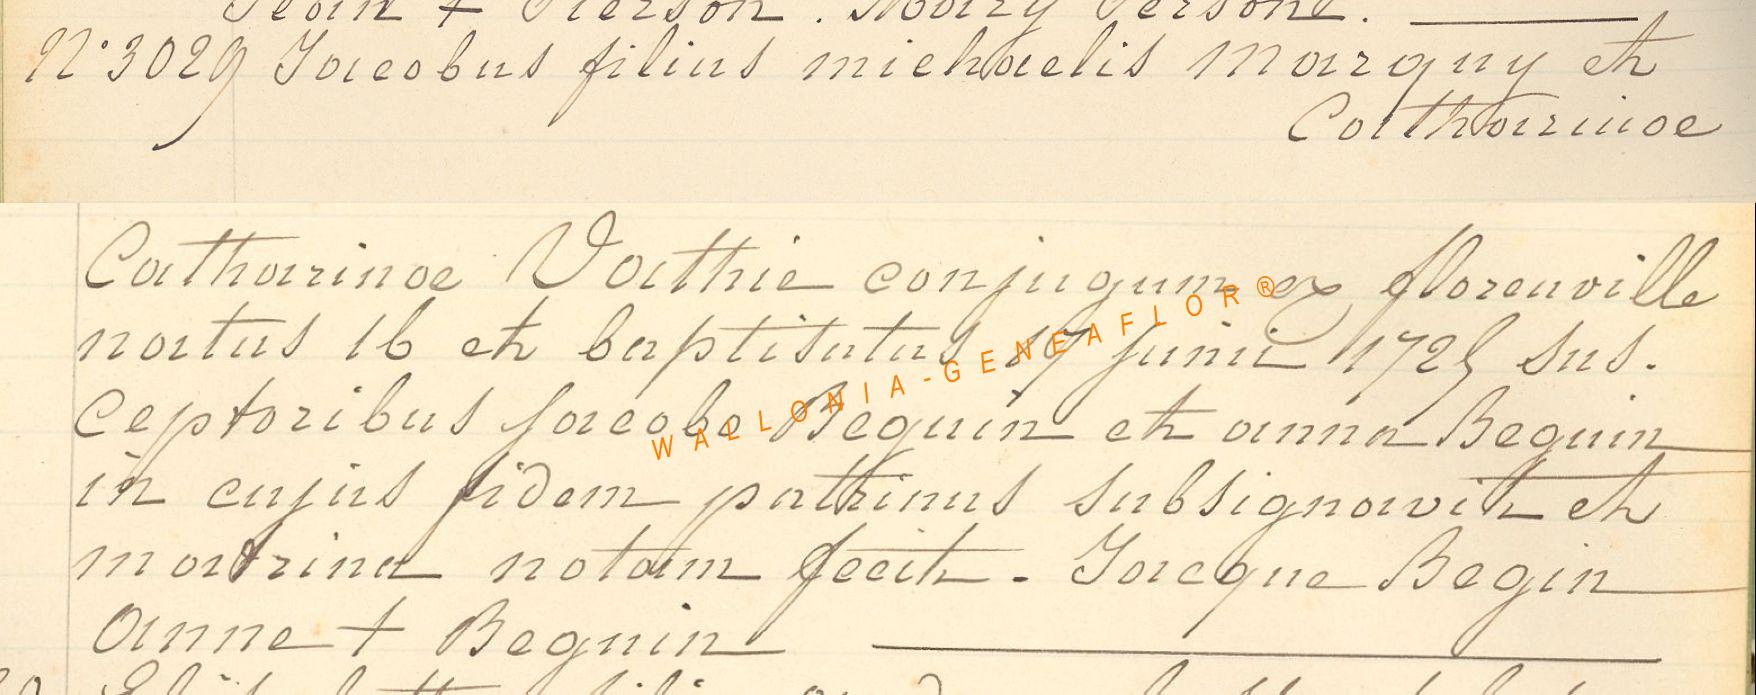 Jean + Pierson. Mary Persone.
N° 3029 Jacobus filius michaelis Marquy et
Catharinae
Catharinae Vathie conjugum ex florenville
natus 16 et baptisatus 17 junii 1725 sus.
ceptoribus jacobo Beguin et anna Beguin
in cujus fidem patrinus subsignavit et
matrina notam fecit. Jacque Begin
Anne + Beguin
WALLONIA-GENEAFLOR®